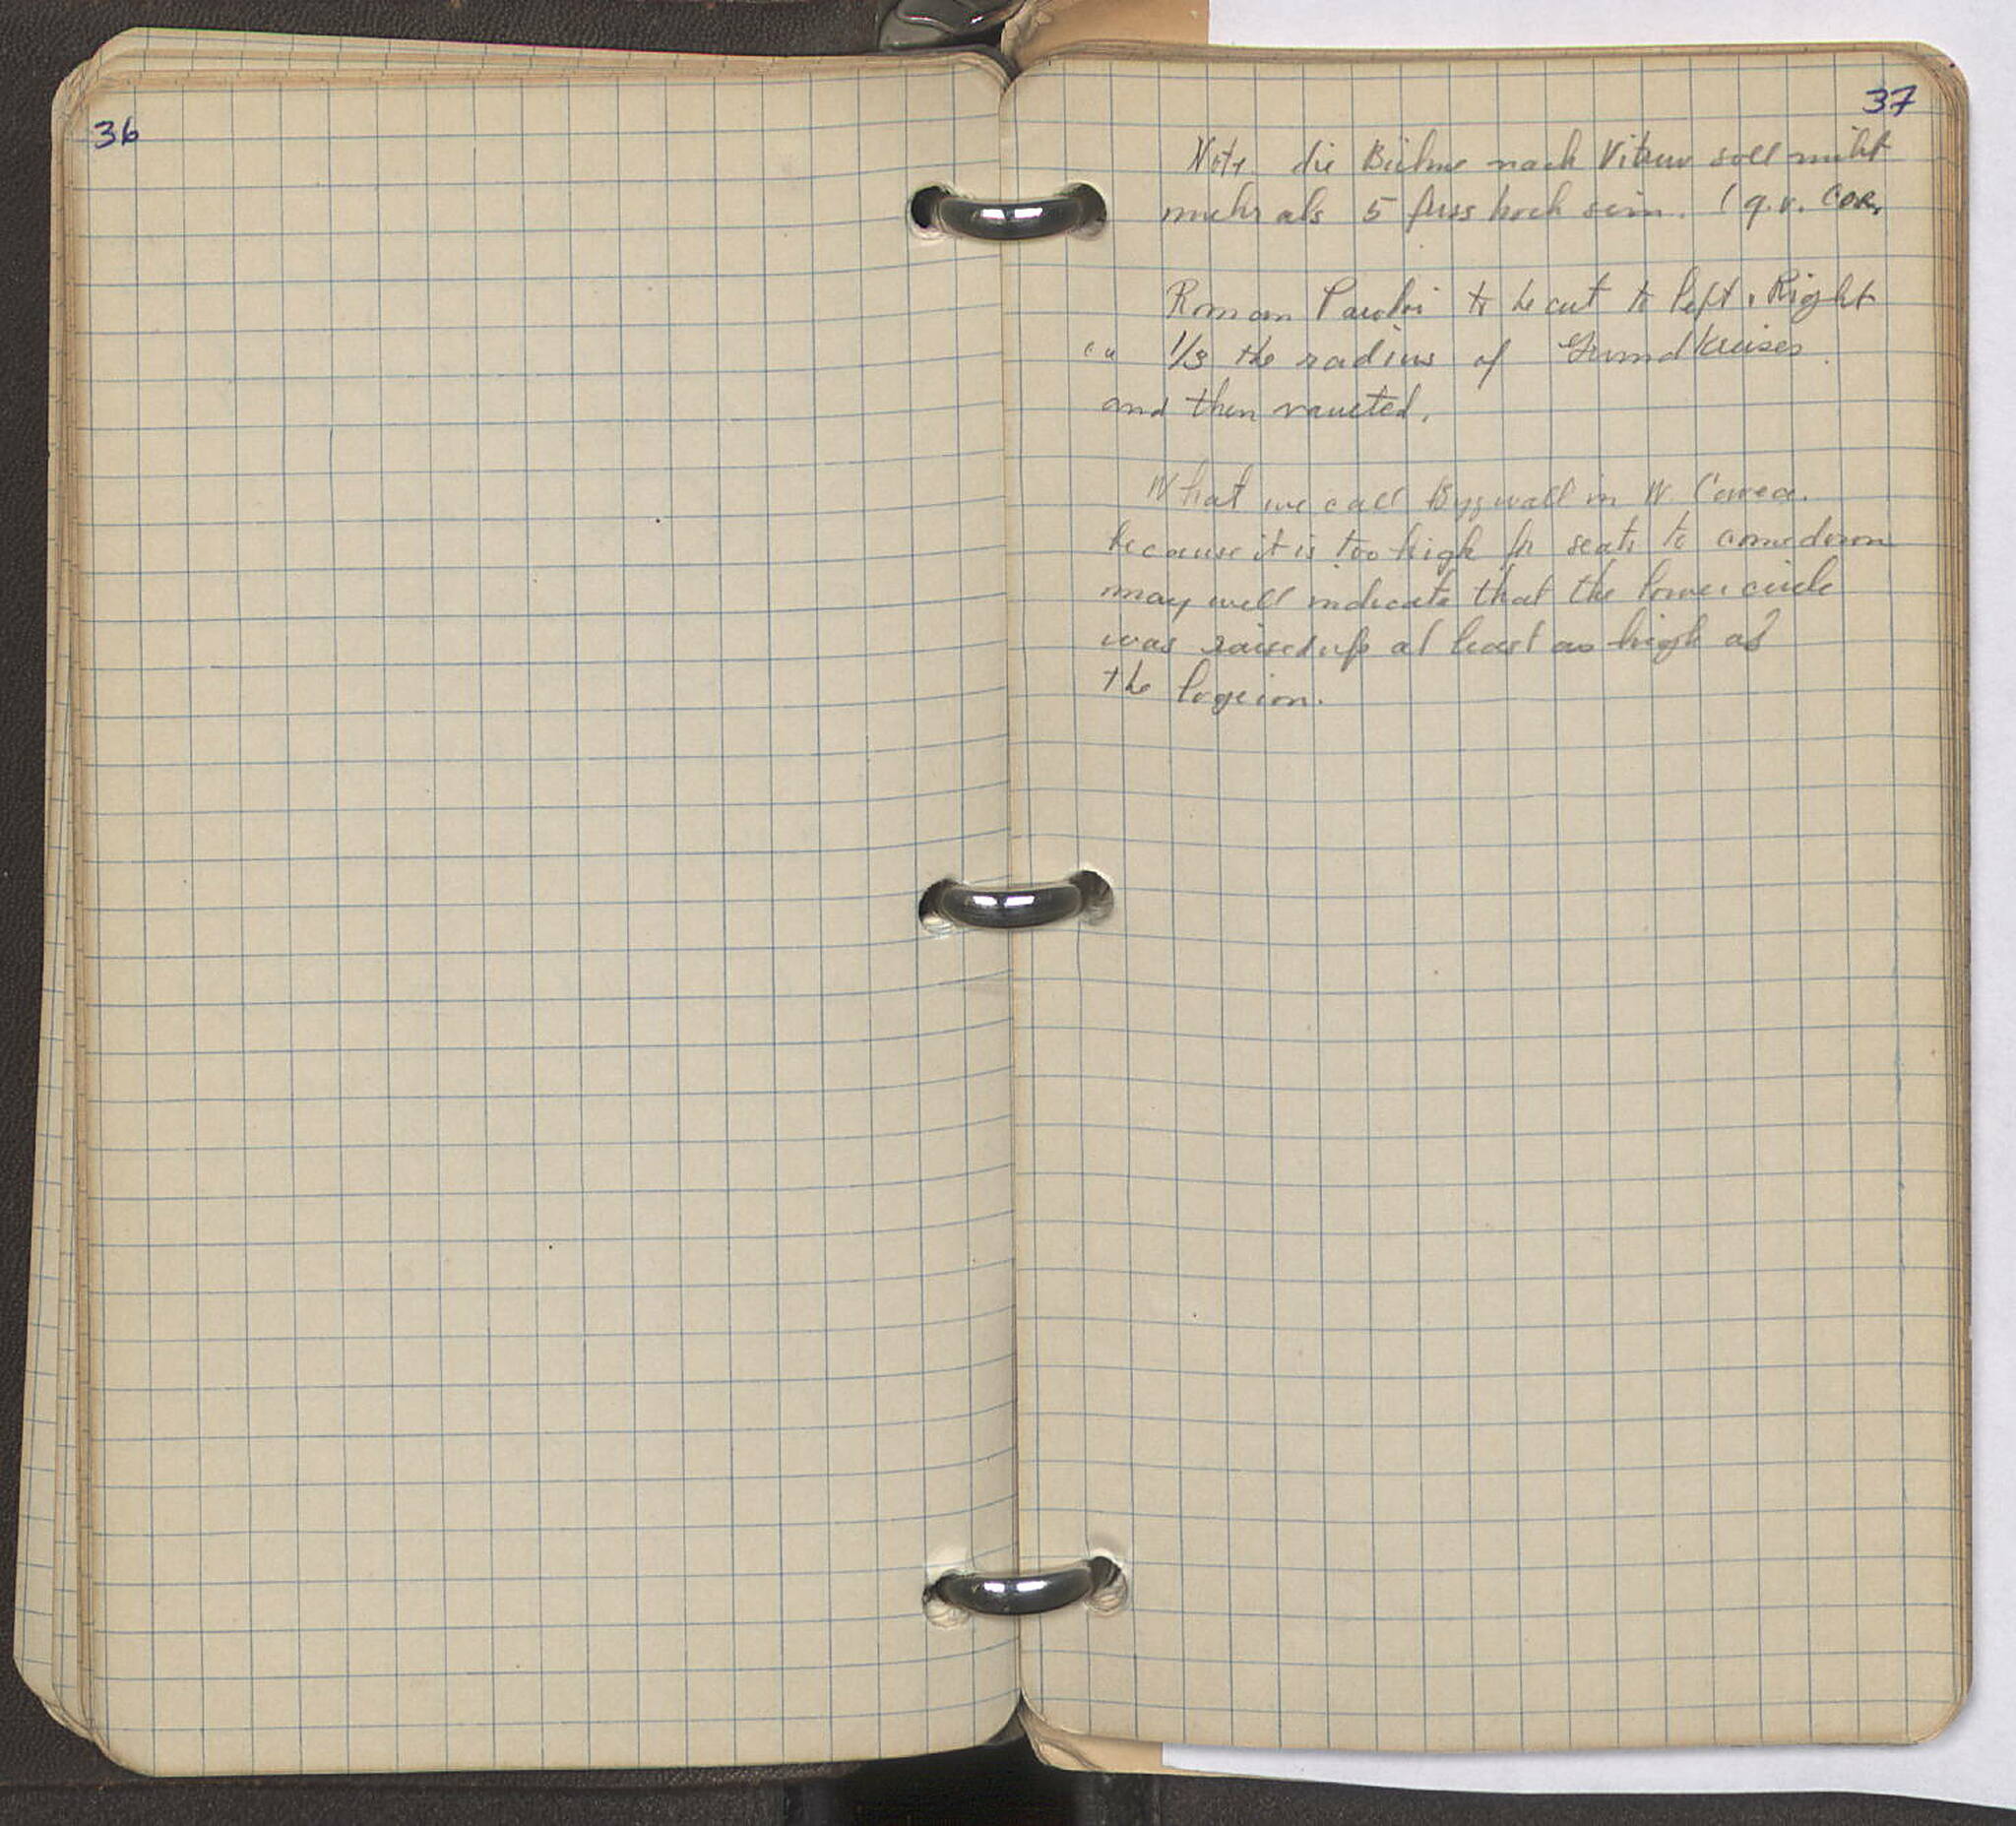 36
37
Note. die Bühne nach Vitruv soll nicht
mehr als 5 fuss hoch sein. (q.v. COR.
Roman Parodoi to be cut to left & Right
ca 1/3 the radius of Grundkreises.
and then vaulted.
What we call Byz wall in W. Cavea.
because it is too high for seats to come down
may well indicate that the lower circle
was raised up at least as high as
the logeion.